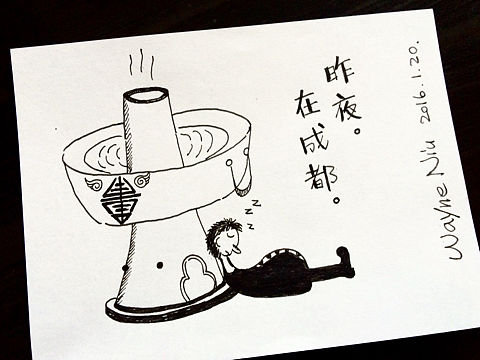 昨夜。
在成都。
Wayne Niu 2016.1.20.
z z z